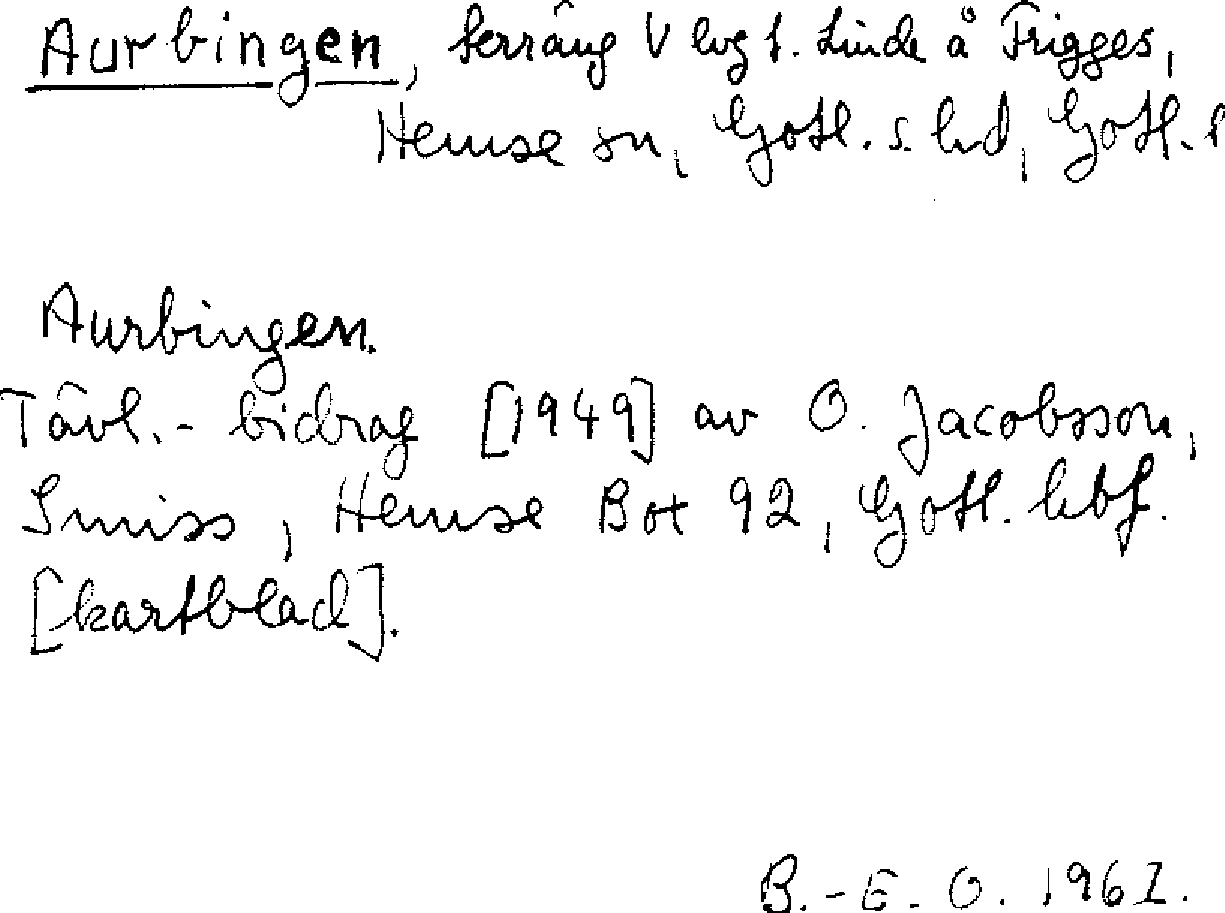 Aurbingen, terräng V lvg t. Linde å Frigges,
Hemse sn, Gotl. s. hd, Gotl. l
Aurbingen.
Tävl.- bidrag [1949] av O. Jacobsson,
Smiss, Hemse Box 92, Gotl. hbf.
[kartblad].
B.-E. O. 1961.